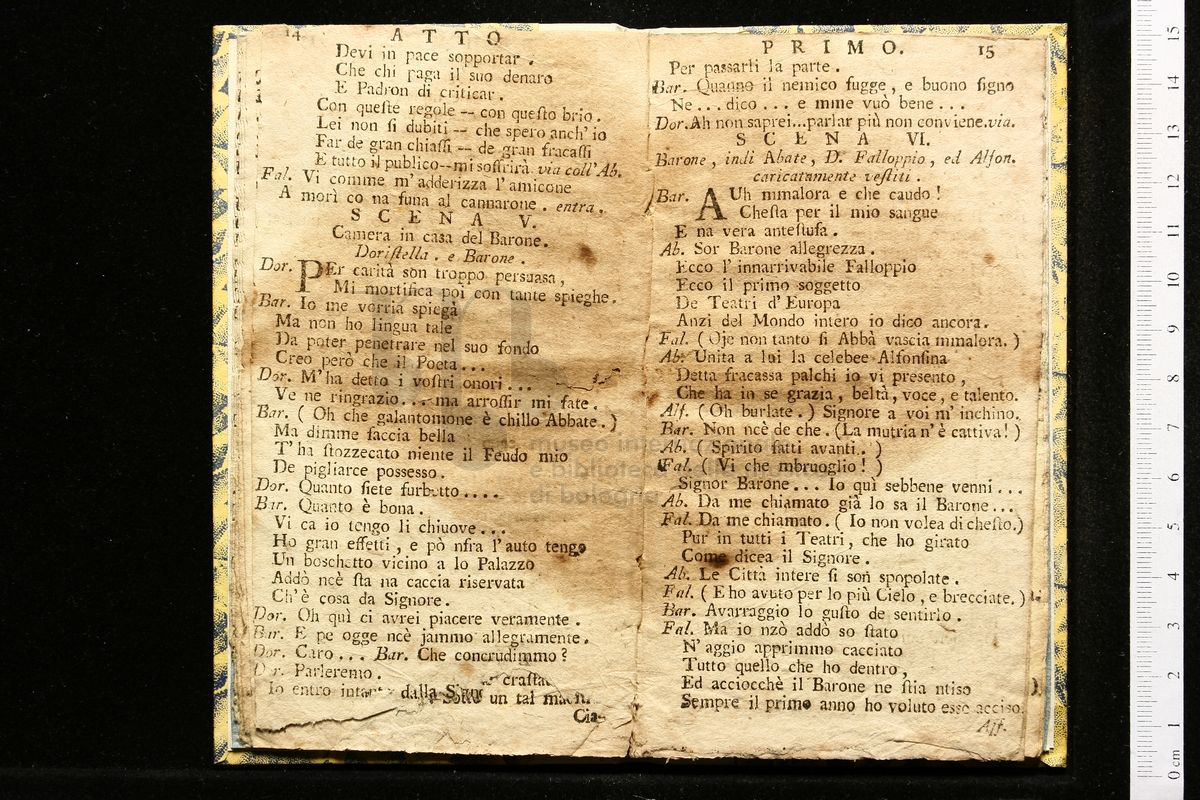 14 ATTO
Devi in pace sopportar.
Che chi paga il suo denaro
E Padron di criticar.
Con queſte regole -- con queſto brio.
Lei non ſi dubiti -- che spero anch' io
Far de gran chiaſſi -- de gran fracaſſi
E tutto il publico -- mi soffrirà. via coll' Ab.
Fal. Vi comme m'adderizza l'amicone
A morì co na funa al cannarone. entra.
SCENA V.
Camera in casa del Barone.
Doriſtella. e Barone.
Dor. PEr carità son troppo persuasa,
Mi mortifica poi con tante spieghe.
Bar. Io me vorria spiegà
Ma non ho lingua tale
Da poter penetrare nel suo fondo
Creo però che il Poeta...
Dor. M'ha detto i voſtri onori...
Ve ne ringrazio... ma arroſſir mi fate.
Bar. ( Oh che galantomone è chillo Abbate. )
Ma dimme faccia bella
T'ha ſtozzecato niente il Feudo mio
De pigliarce possesso.
Dor. Quanto ſiete furbetto....
Bar. Quanto è bona.
Vi ca io tengo li chiuove...
Ho gran effetti, e pò nfra l'auto tengo
Un boschetto vicino a lo Palazzo
Addò ncè ſta na caccia riservata
Ch'è cosa da Signore.
Dor. Oh quì ci avrei piacere veramente.
Bar. E pe ogge ncè jammo allegramente.
Dor. Caro... Bar. Che concrudimmo?
Dor. Parleremo.
Io entro dalla un tal
Cia-
PRIMO. 15
Per passarli la parte.
Bar. Quanno il nemico fugge, e buono ſigno
Ne... dico... e mme vuò bene...
Dor. Ah non saprei...parlar più non conviene. via.
SCENA VI.
Barone, indi Abate, D. Falloppio, ed Alfon.
caricatamente veſtiti.
Bar. AUh mmalora e che caudo!
Cheſta per il mio sangue
E na vera anteſtufa.
Ab. Sor Barone allegrezza.
Ecco l'innarrivabile Falloppio
Ecco il primo soggetto
De Teatri d'Europa
Anzi del Mondo intero io dico ancora.
Fal. ( Oje non tanto ſi Abbà vascia mmalora. )
Ab. Unita a lui la celebee Alfonſina
Detta fracassa palchi io vi presento,
Che ha in se grazia, beltà, voce, e talento.
Alf. ( Oh burlate. ) Signore a voi m'inchino.
Bar. Non ncè de che. (La mutria n'è cattiva! )
Ab. ( Spirito fatti avanti.. )
Fal. ( Vi che mbruoglio! )
Signor Barone... Io quì sebbene venni...
Ab. Da me chiamato già lo sa il Barone...
Fal. Da me chiamato. ( Io non volea di cheſto.)
Pur in tutti i Teatri, che ho girato
Come dicea il Signore.
Ab. Le Città intere ſi son spopolate.
Fal. ( E ho avuto per lo più Cielo, e brecciate. )
Bar. Avarraggio lo guſto de sentirlo.
Fal. Ma io nzò addò so ſtato
N'aggio apprimmo cacciato
Tutto quello che ho dentro,
Ed acciocchè il Barone ne ſtia ntiso
Sempre il primo anno ho voluto esse acciso.
Alf.
0 cm 1 2 3 4 5 6 7 8 9 10 11 12 13 14 15